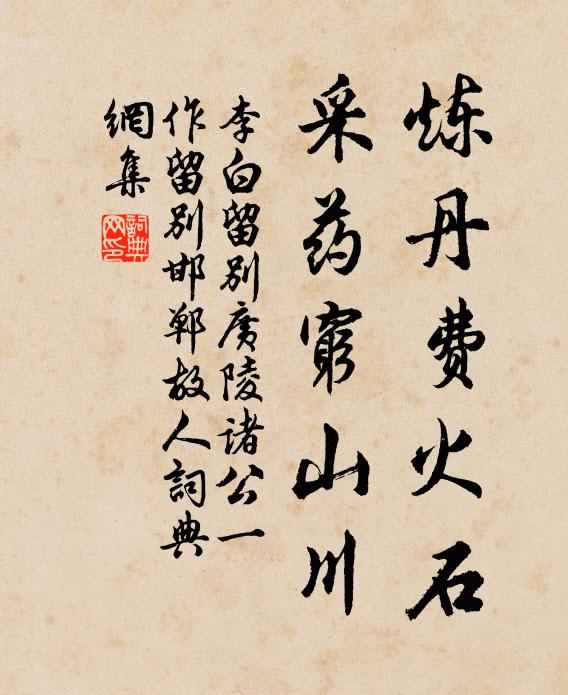 炼丹费火石
采药窮山川
李白留别廣陵诸公一
作留别邯郸故人詞典
網集
詞典
网印